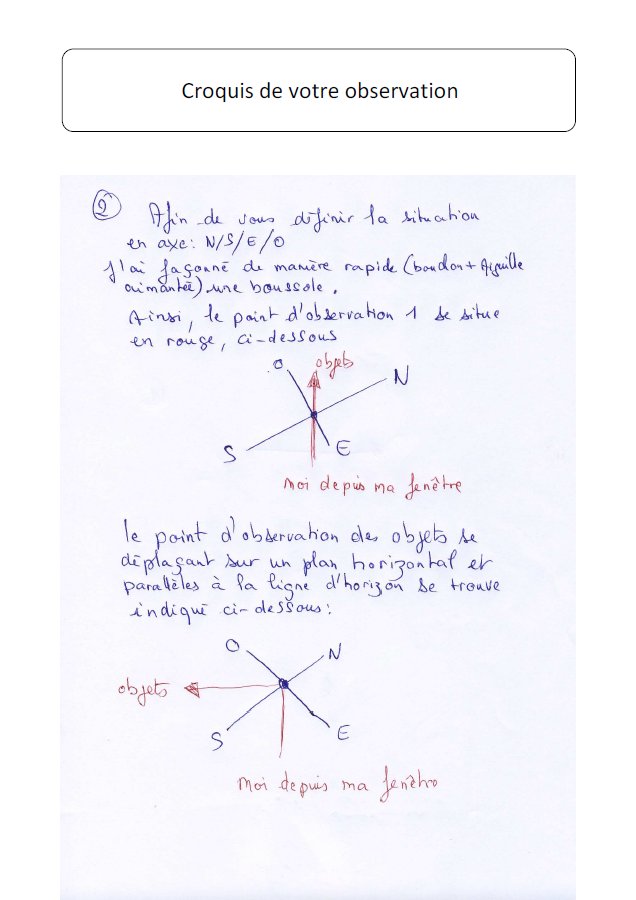 Croquis de votre observation
2
Afin de vous définir la situation
en axe: N/S/E/O
J'ai façonné de manière rapide (boudon + Aiguille
aimantée) une boussole.
Ainsi, le point d'observation 1 se situe
en rouge, ci-dessous
O objets N
S E
Moi depuis ma fenêtre
le point d'observation des objets se
déplaçant sur un plan horizontal et
parallèles à la ligne d'horizon se trouve
indiqué ci-dessous:
O N
objets
S E
Moi depuis ma fenêtre